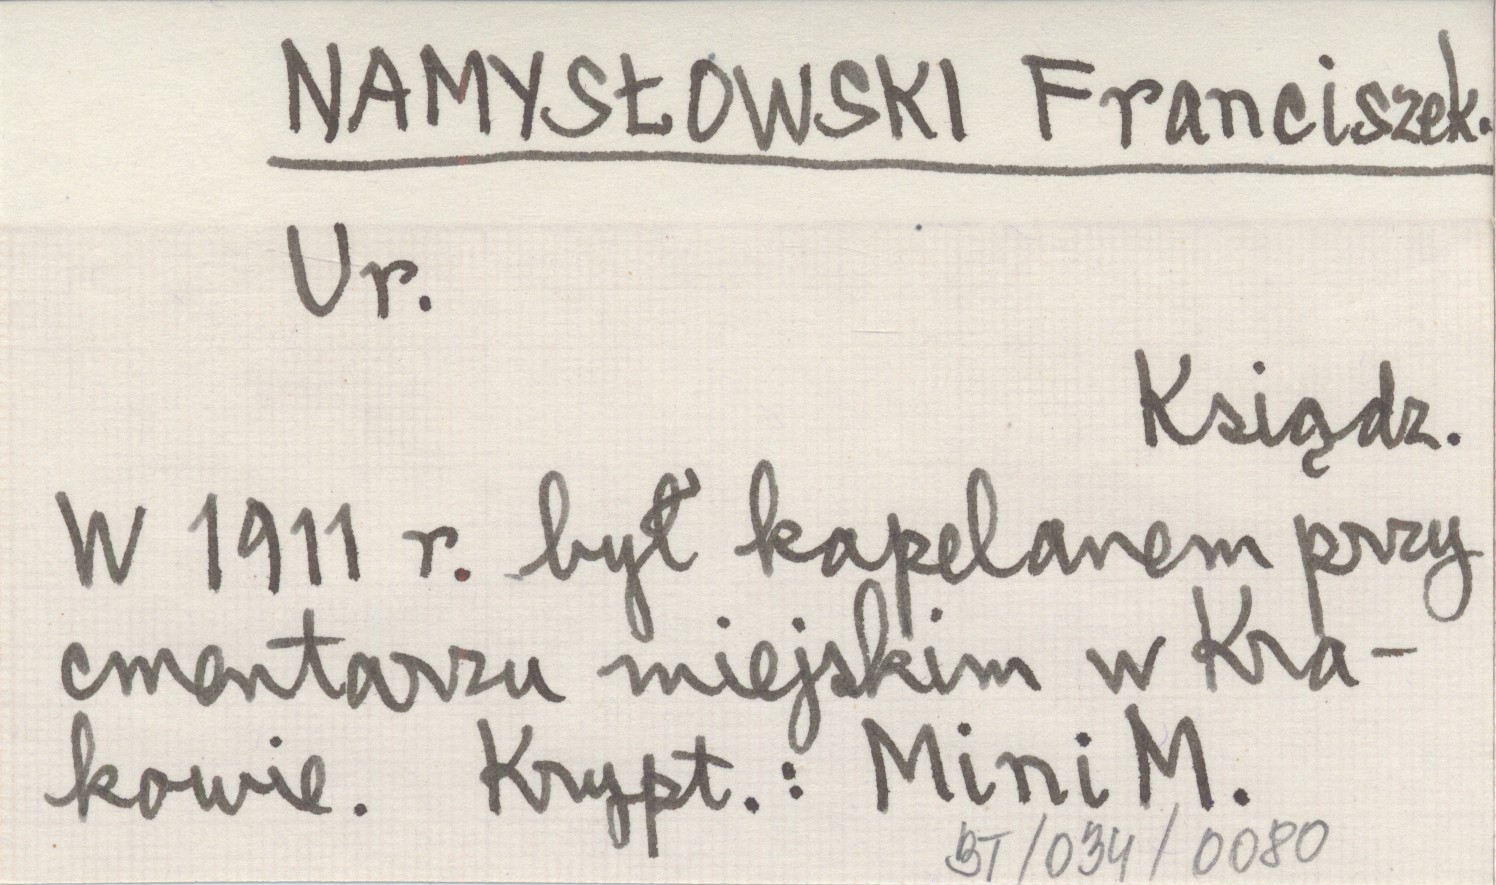 NAMYSŁOWSKI Franciszek.
Ur.
Ksiądz.
W 1911 r. był kapelanem przy
cmentarzu miejskim w Kra-
kowie. Krypt.: Mini M.
BT/034/0080